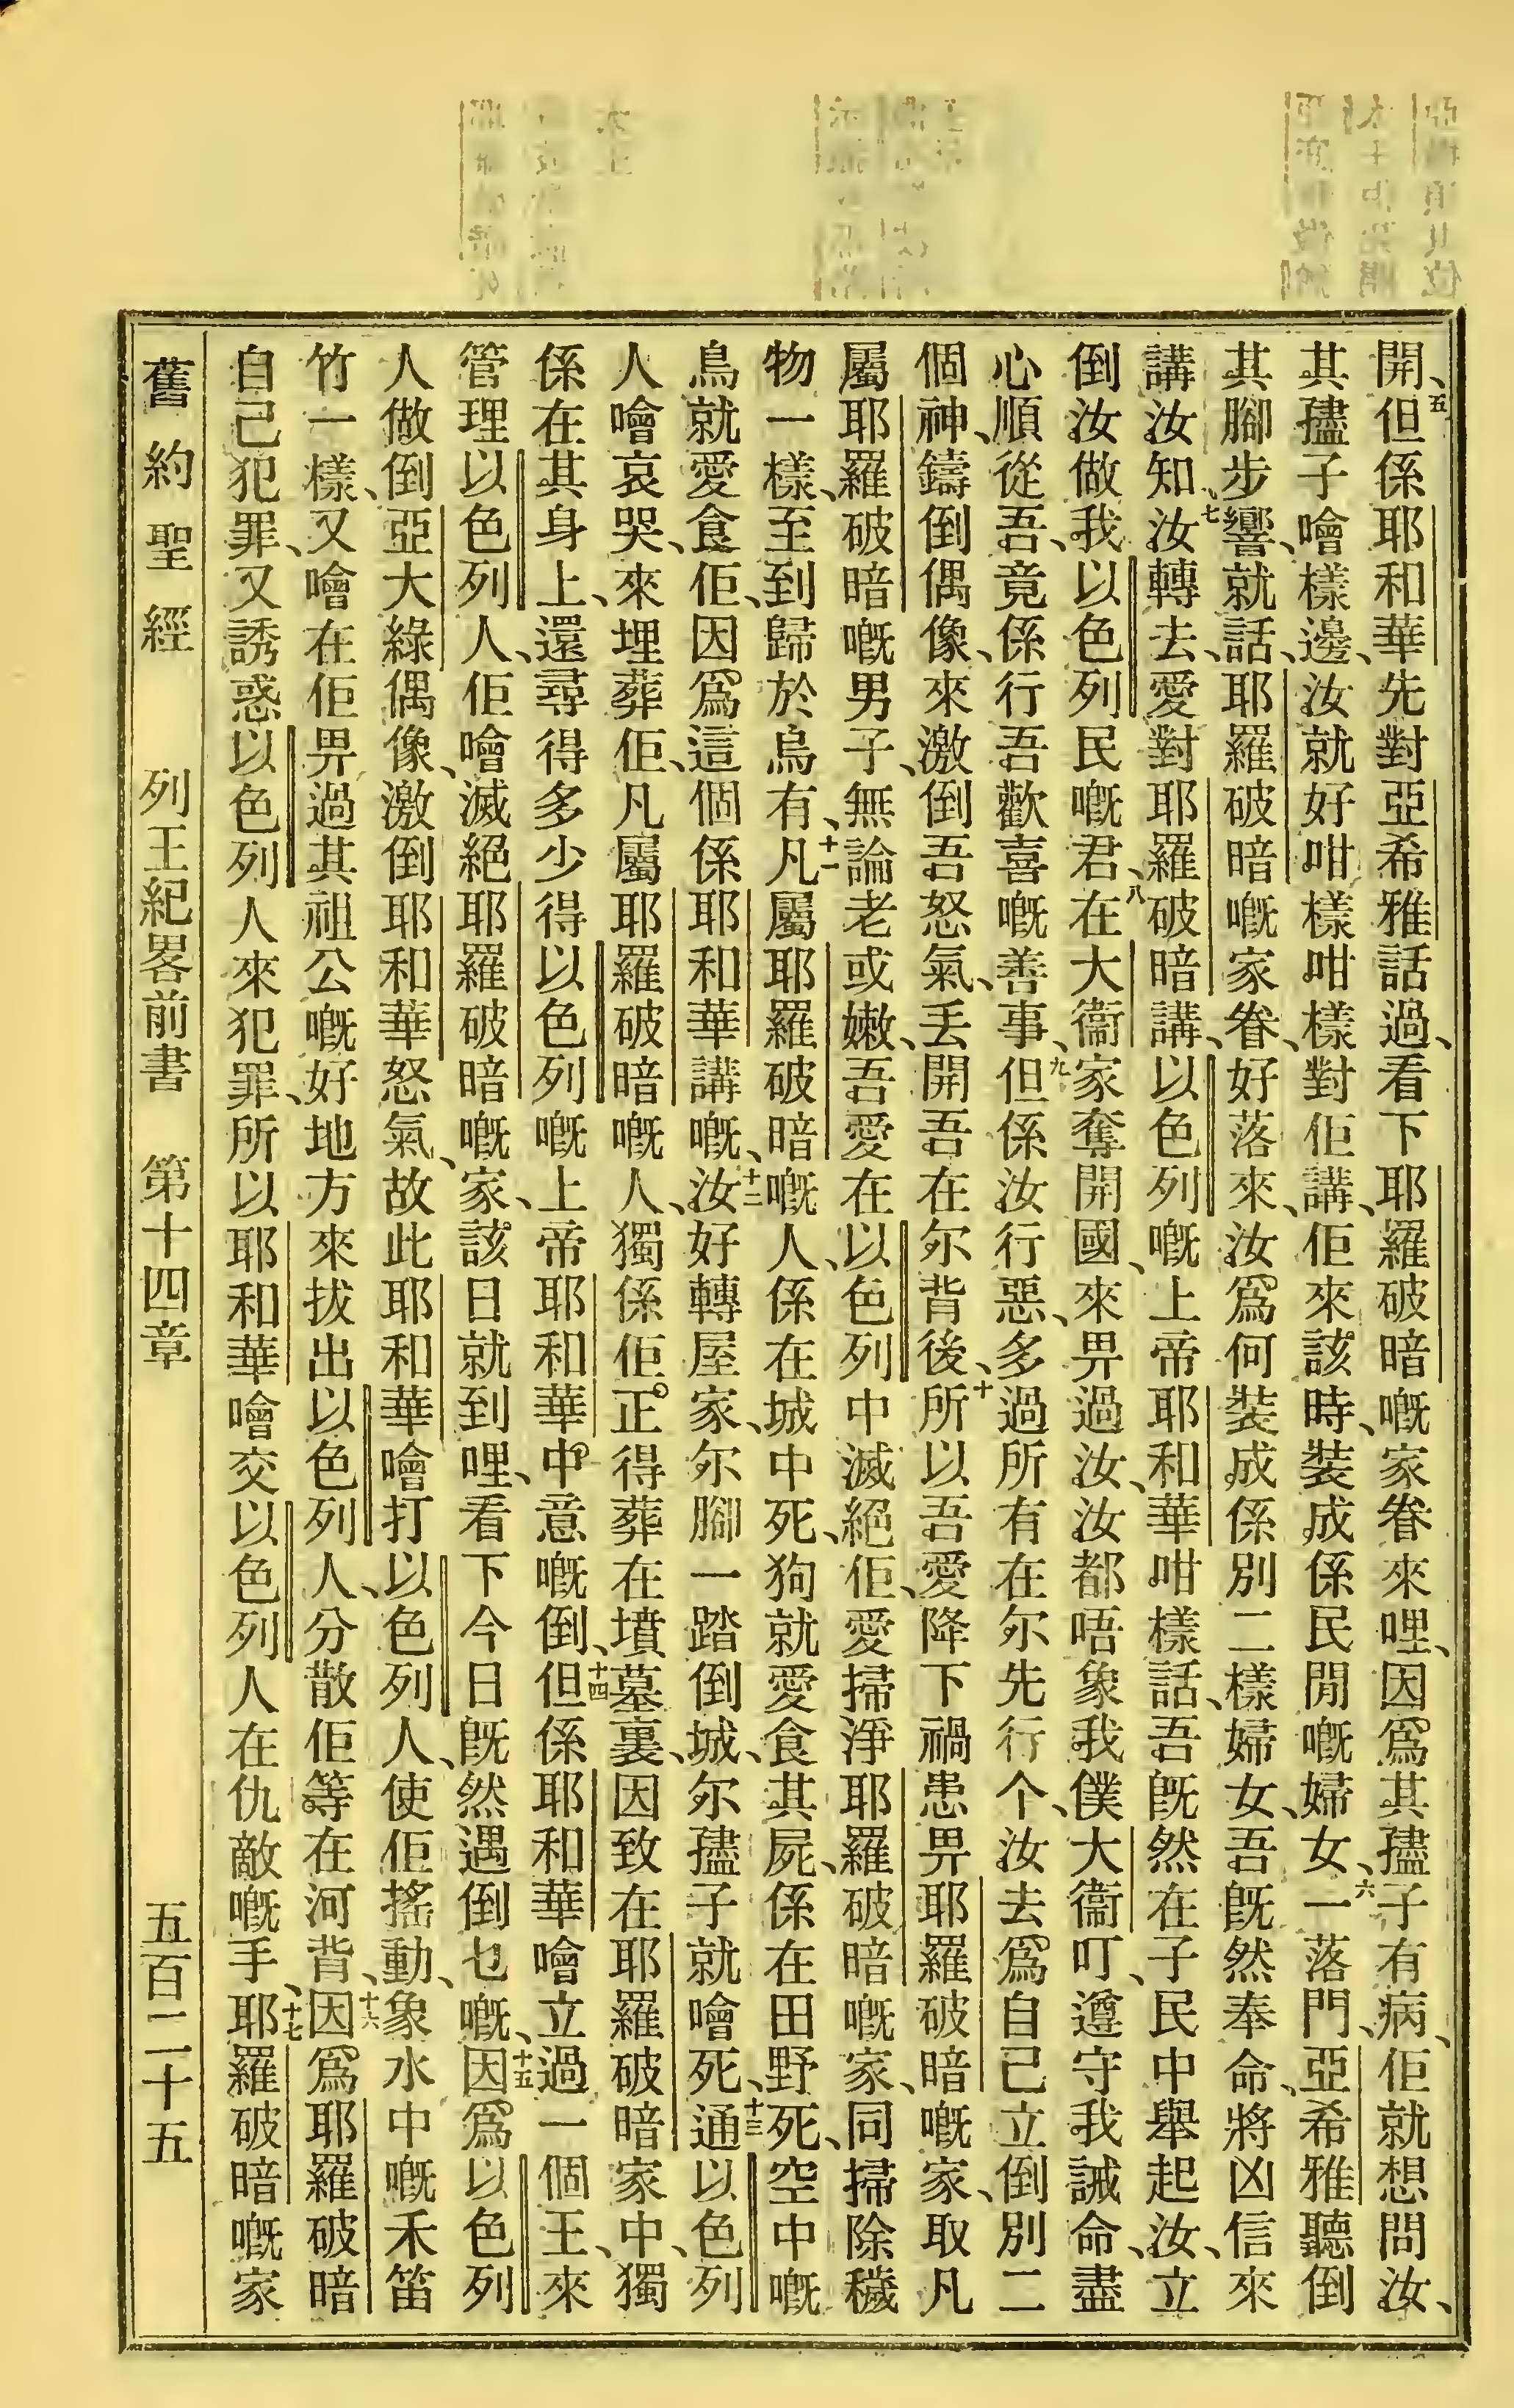 開、五但係耶和華先對亞希雅話過、看下耶羅破暗嘅家眷來哩、因爲其孻子有病、佢就想問汝、
其孻子噲樣邊、汝就好咁樣咁樣對佢講、佢來該時、裝成係民閒嘅婦女、六一落門、亞希雅聽倒
其腳步響、就話、耶羅破暗嘅家眷、好落來、汝爲何裝成係別二樣婦女、吾旣然奉命、將凶信來
講汝知、七汝轉去、愛對耶羅破暗講、以色列嘅上帝耶和華咁樣話、吾旣然在子民中舉起汝、立
倒汝做我以色列民嘅君、八在大衞家奪開國、來畀過汝、汝都唔象我僕大衞叮、遵守我誡命、盡
心順從吾、竟係行吾歡喜嘅善事、九但係汝行惡、多過所有在尔先行个、汝去爲自己立倒別二
個神、鑄倒偶像、來激倒吾怒氣、丢開吾在尔背後、十所以吾愛降下禍患畀耶羅破暗嘅家、取凡
屬耶羅破暗嘅男子、無論老或嫩、吾愛在以色列中滅絕佢、愛掃淨耶羅破暗嘅家、同掃除穢
物一樣、至到歸於烏有、十一凡屬耶羅破暗嘅人、係在城中死、狗就愛食其屍、係在田野死、空中嘅
鳥就愛食佢、因爲這個係耶和華講嘅、十二汝好轉屋家、尔腳一踏倒城、尔孻子就噲死、十三通以色列
人噲哀哭、來埋葬佢、凡屬耶羅破暗嘅人、獨係佢正得葬在墳墓裏、因致在耶羅破暗家中、獨
係在其身上、還尋得多少得以色列嘅上帝耶和華中意嘅倒、十四但係耶和華噲立過一個王、來
管理以色列人、佢噲滅絕耶羅破暗嘅家、該日就到哩、看下今日旣然遇倒乜嘅、十五因爲以色列
人做倒亞大綠偶像、激倒耶和華怒氣、故此耶和華噲打以色列人、使佢搖動、象水中嘅禾笛
竹一樣、又噲在佢畀過其祖公嘅好地方來拔出以色列人、分散佢等在河背、十六因爲耶羅破暗
自己犯罪、又誘惑以色列人來犯罪、所以耶和華噲交以色列人在仇敵嘅手、十七耶羅破暗嘅家
舊約聖經　列王紀畧前書　第十四章　五百二十五